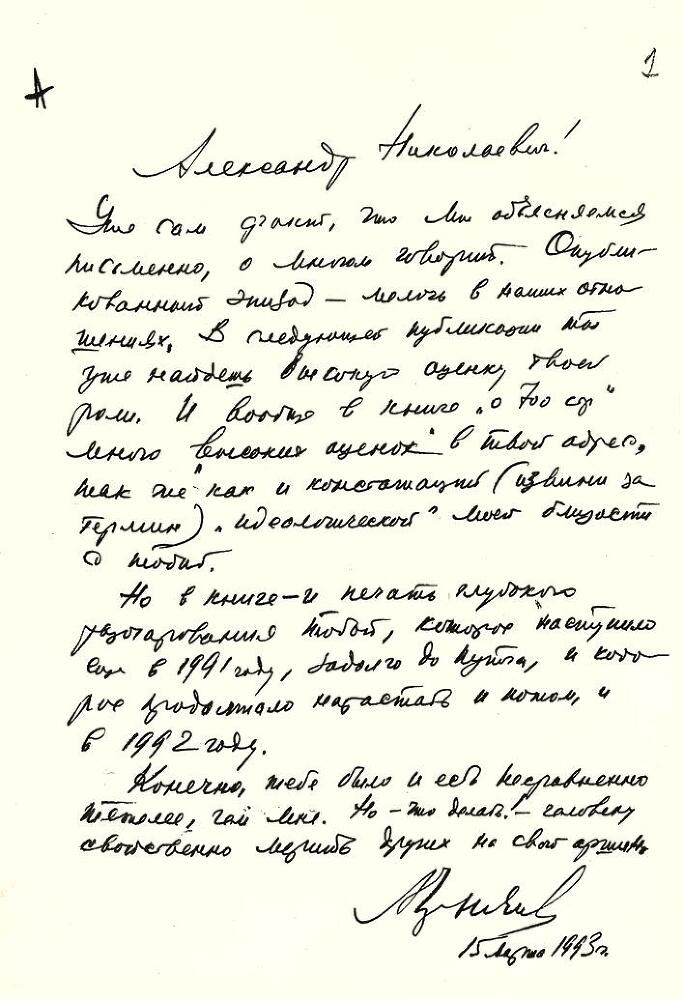 1
А
Александр Николаевич!
Уже сам факт, что мы объясняемся
письменно, о многом говорит. Опубли-
кованный эпизод – мелочь в наших отно-
шениях. В следующей публикации ты
уже найдешь высокую оценку твоей
роли. И вообще в книге „о 700 стр"
много „высоких оценок" в твой адрес,
так же как и констатаций (извини за
термин) „идеологической" моей близости
с тобой.
Но в книге – и печать глубокого
разочарования тобой, которое наступило
еще в 1991 году, задолго до путча, и кото-
рое продолжало нарастать и потом, и
в 1992 году.
Конечно, тебе было и есть несравненно
тяжелее, чем мне. Но – что делать! – человеку
свойственно мерить других на свой аршин
А. Черняев
15 марта 1993 г.